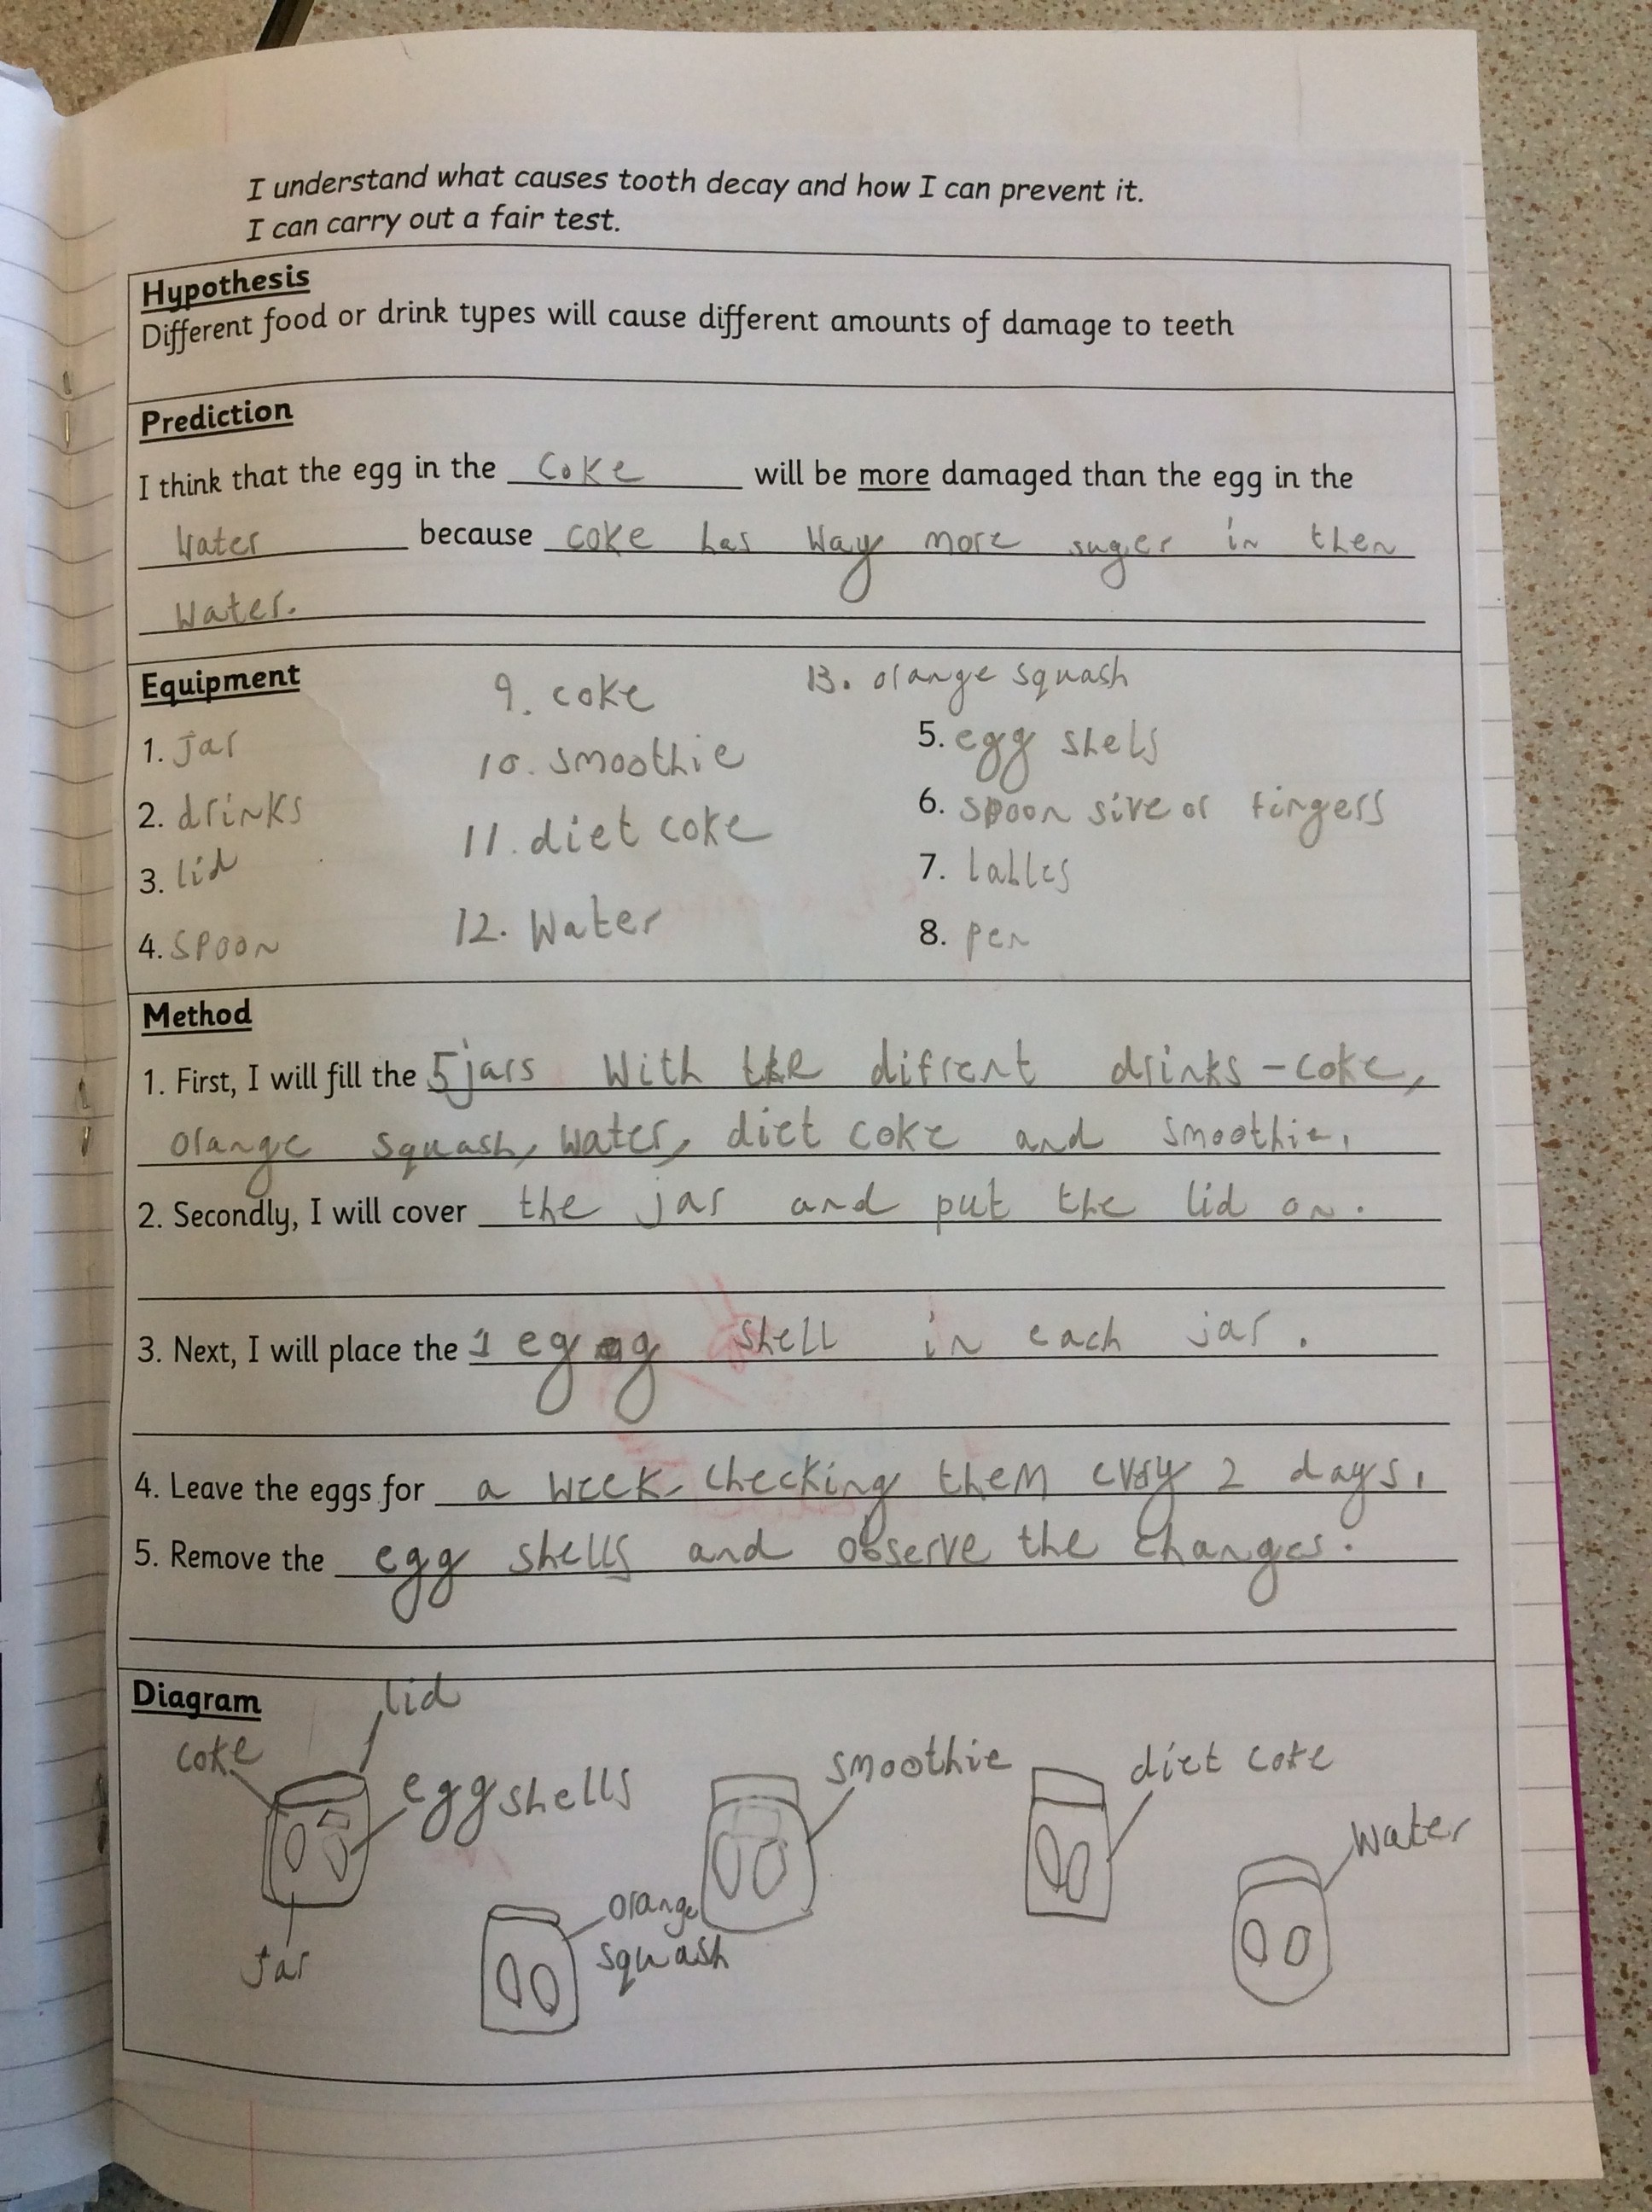 I understand what causes tooth decay and how I can prevent it.
I can carry out a fair test.
Hypothesis
Different food or drink types will cause different amounts of damage to teeth
Prediction
I think that the egg in the coke will be more damaged than the egg in the
water because coke has way more suger in then
water.
Equipment
1. jar
2. drinks
3. lid
4. spoon
9. coke
10. smoothie
11. diet coke
12. water
13. orange squash
5. egg shels
6. spoon sive or fingers
7. lables
8. pen
Method
1. First, I will fill the 5 jars with the difrent drinks - coke,
orange squash, water, diet coke and smoothie.
2. Secondly, I will cover the jar and put the lid on.
3. Next, I will place the 1 egg shell in each jar.
4. Leave the eggs for a week, checking them evry 2 days.
5. Remove the egg shells and observe the changes.
Diagram
lid
coke
egg shells
jar
orange
squash
smoothie
diet coke
water